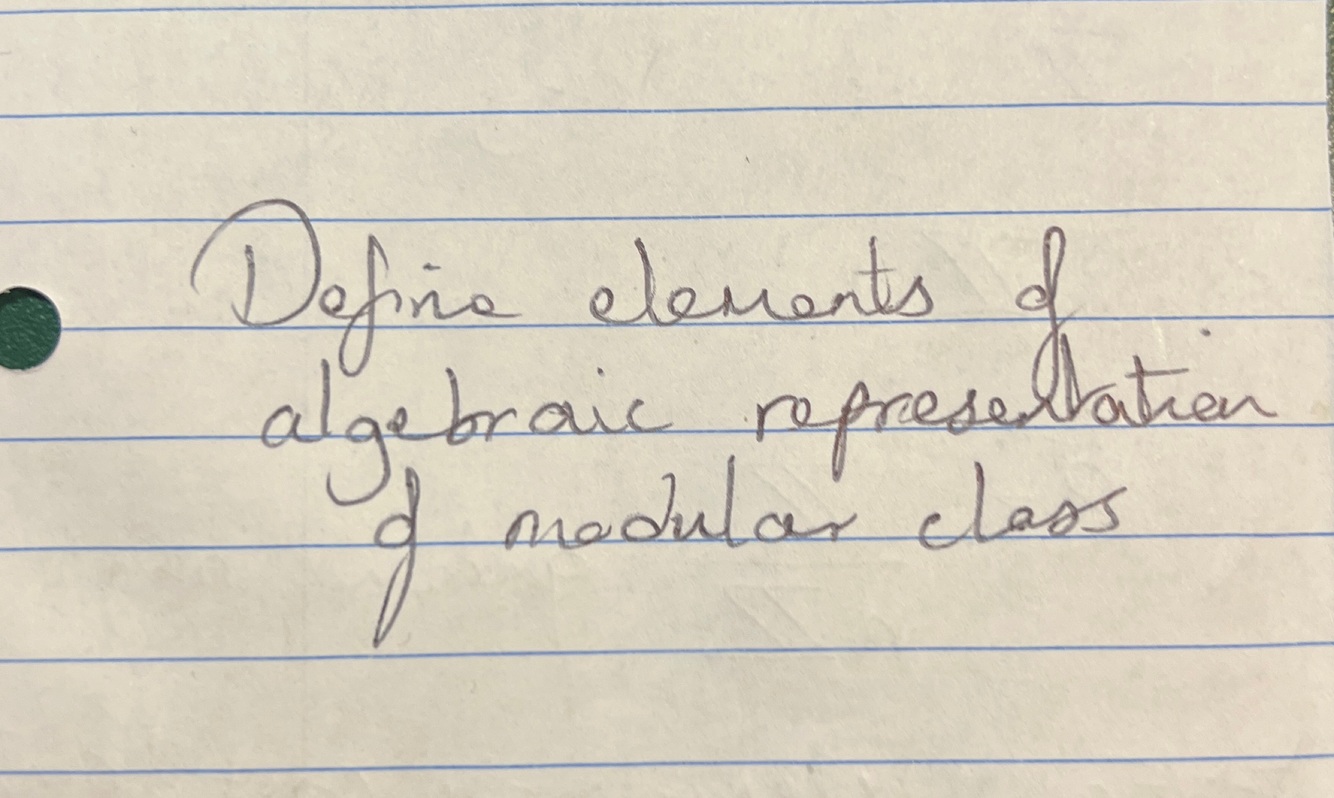 Define elements of
algebraic representation
of modular class